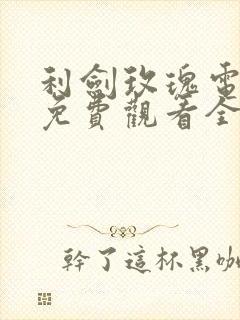 利劍玫瑰電
免費觀看全
幹了這杯黑咖